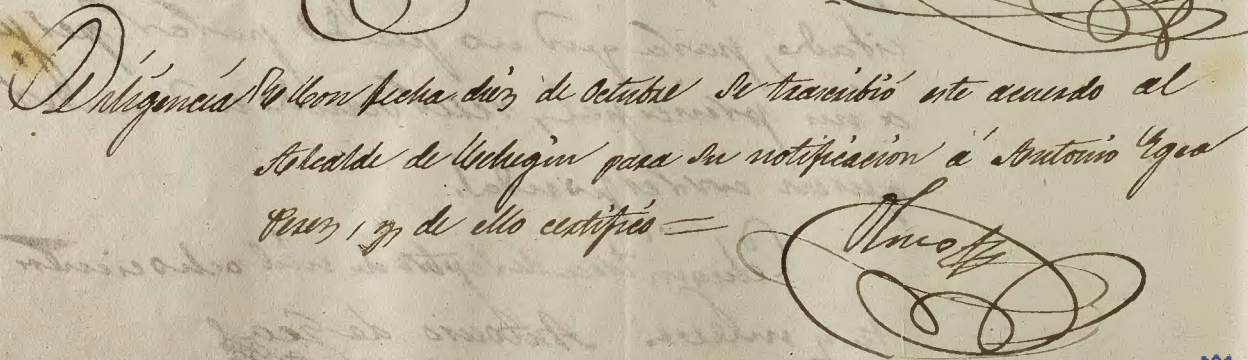 Diligencia Con fecha diez de Octubre se trascribió este acuerdo al
Alcalde de Cehegin para su notificacion á Antonio Egea
Perez, y de ello certifico =